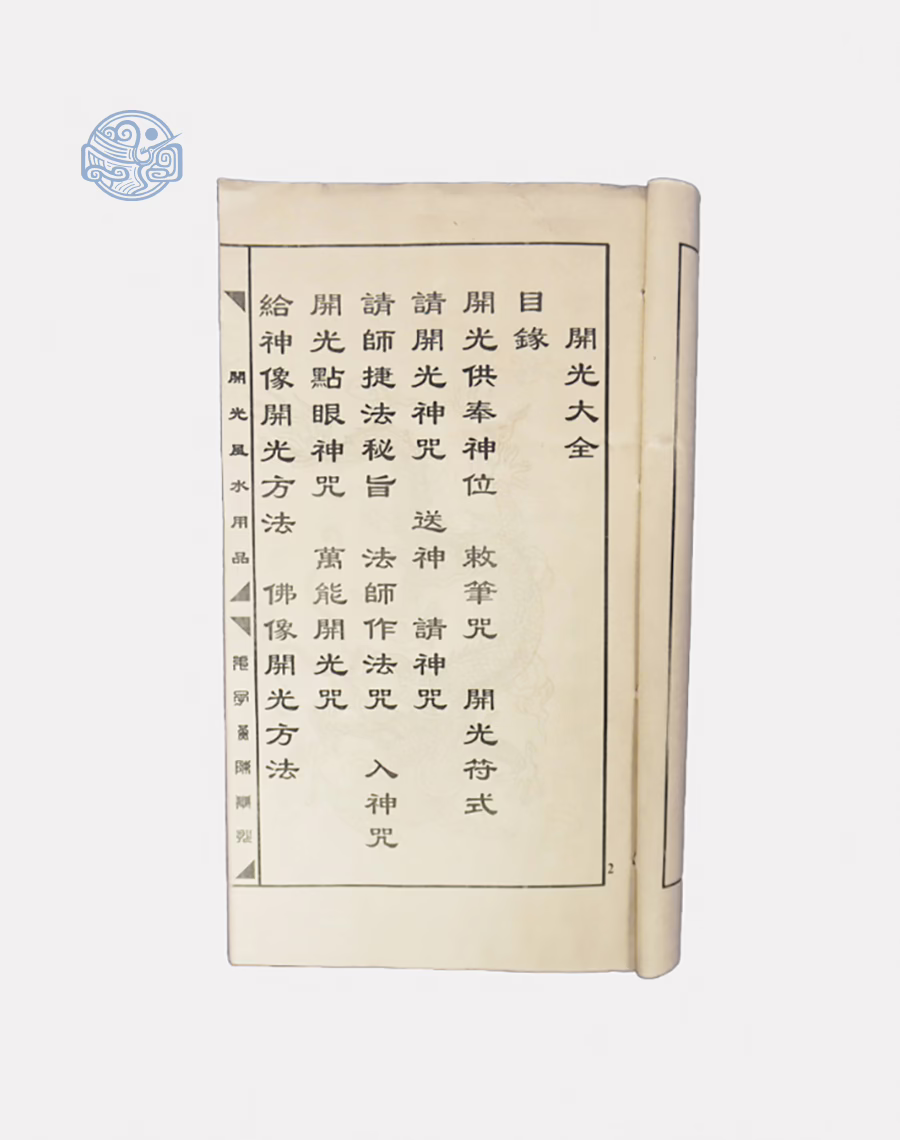 開光大全
目錄
開光供奉神位 敕筆咒 開光符式
請開光神咒 送神 請神咒
請師捷法秘旨 法師作法咒 入神咒
開光點眼神咒 萬能開光咒
給神像開光方法 佛像開光方法
開光風水用品
2